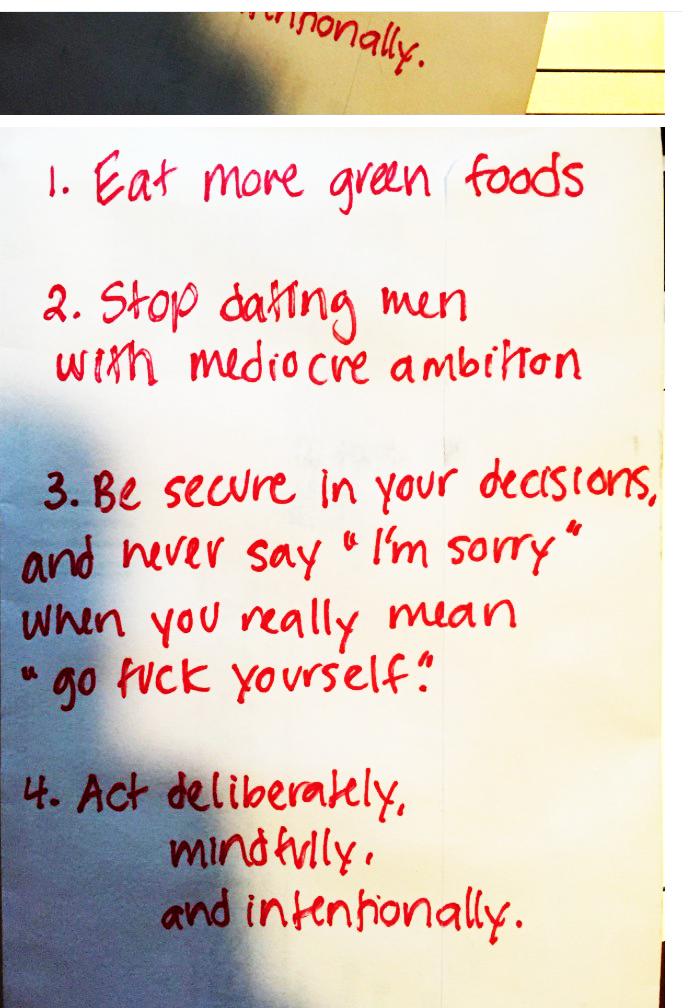 intentionally.
1. Eat more green foods
2. Stop dating men
with mediocre ambition
3. Be secure in your decisions,
and never say "I'm sorry"
when you really mean
"go fuck yourself."
4. Act deliberately,
mindfully,
and intentionally.